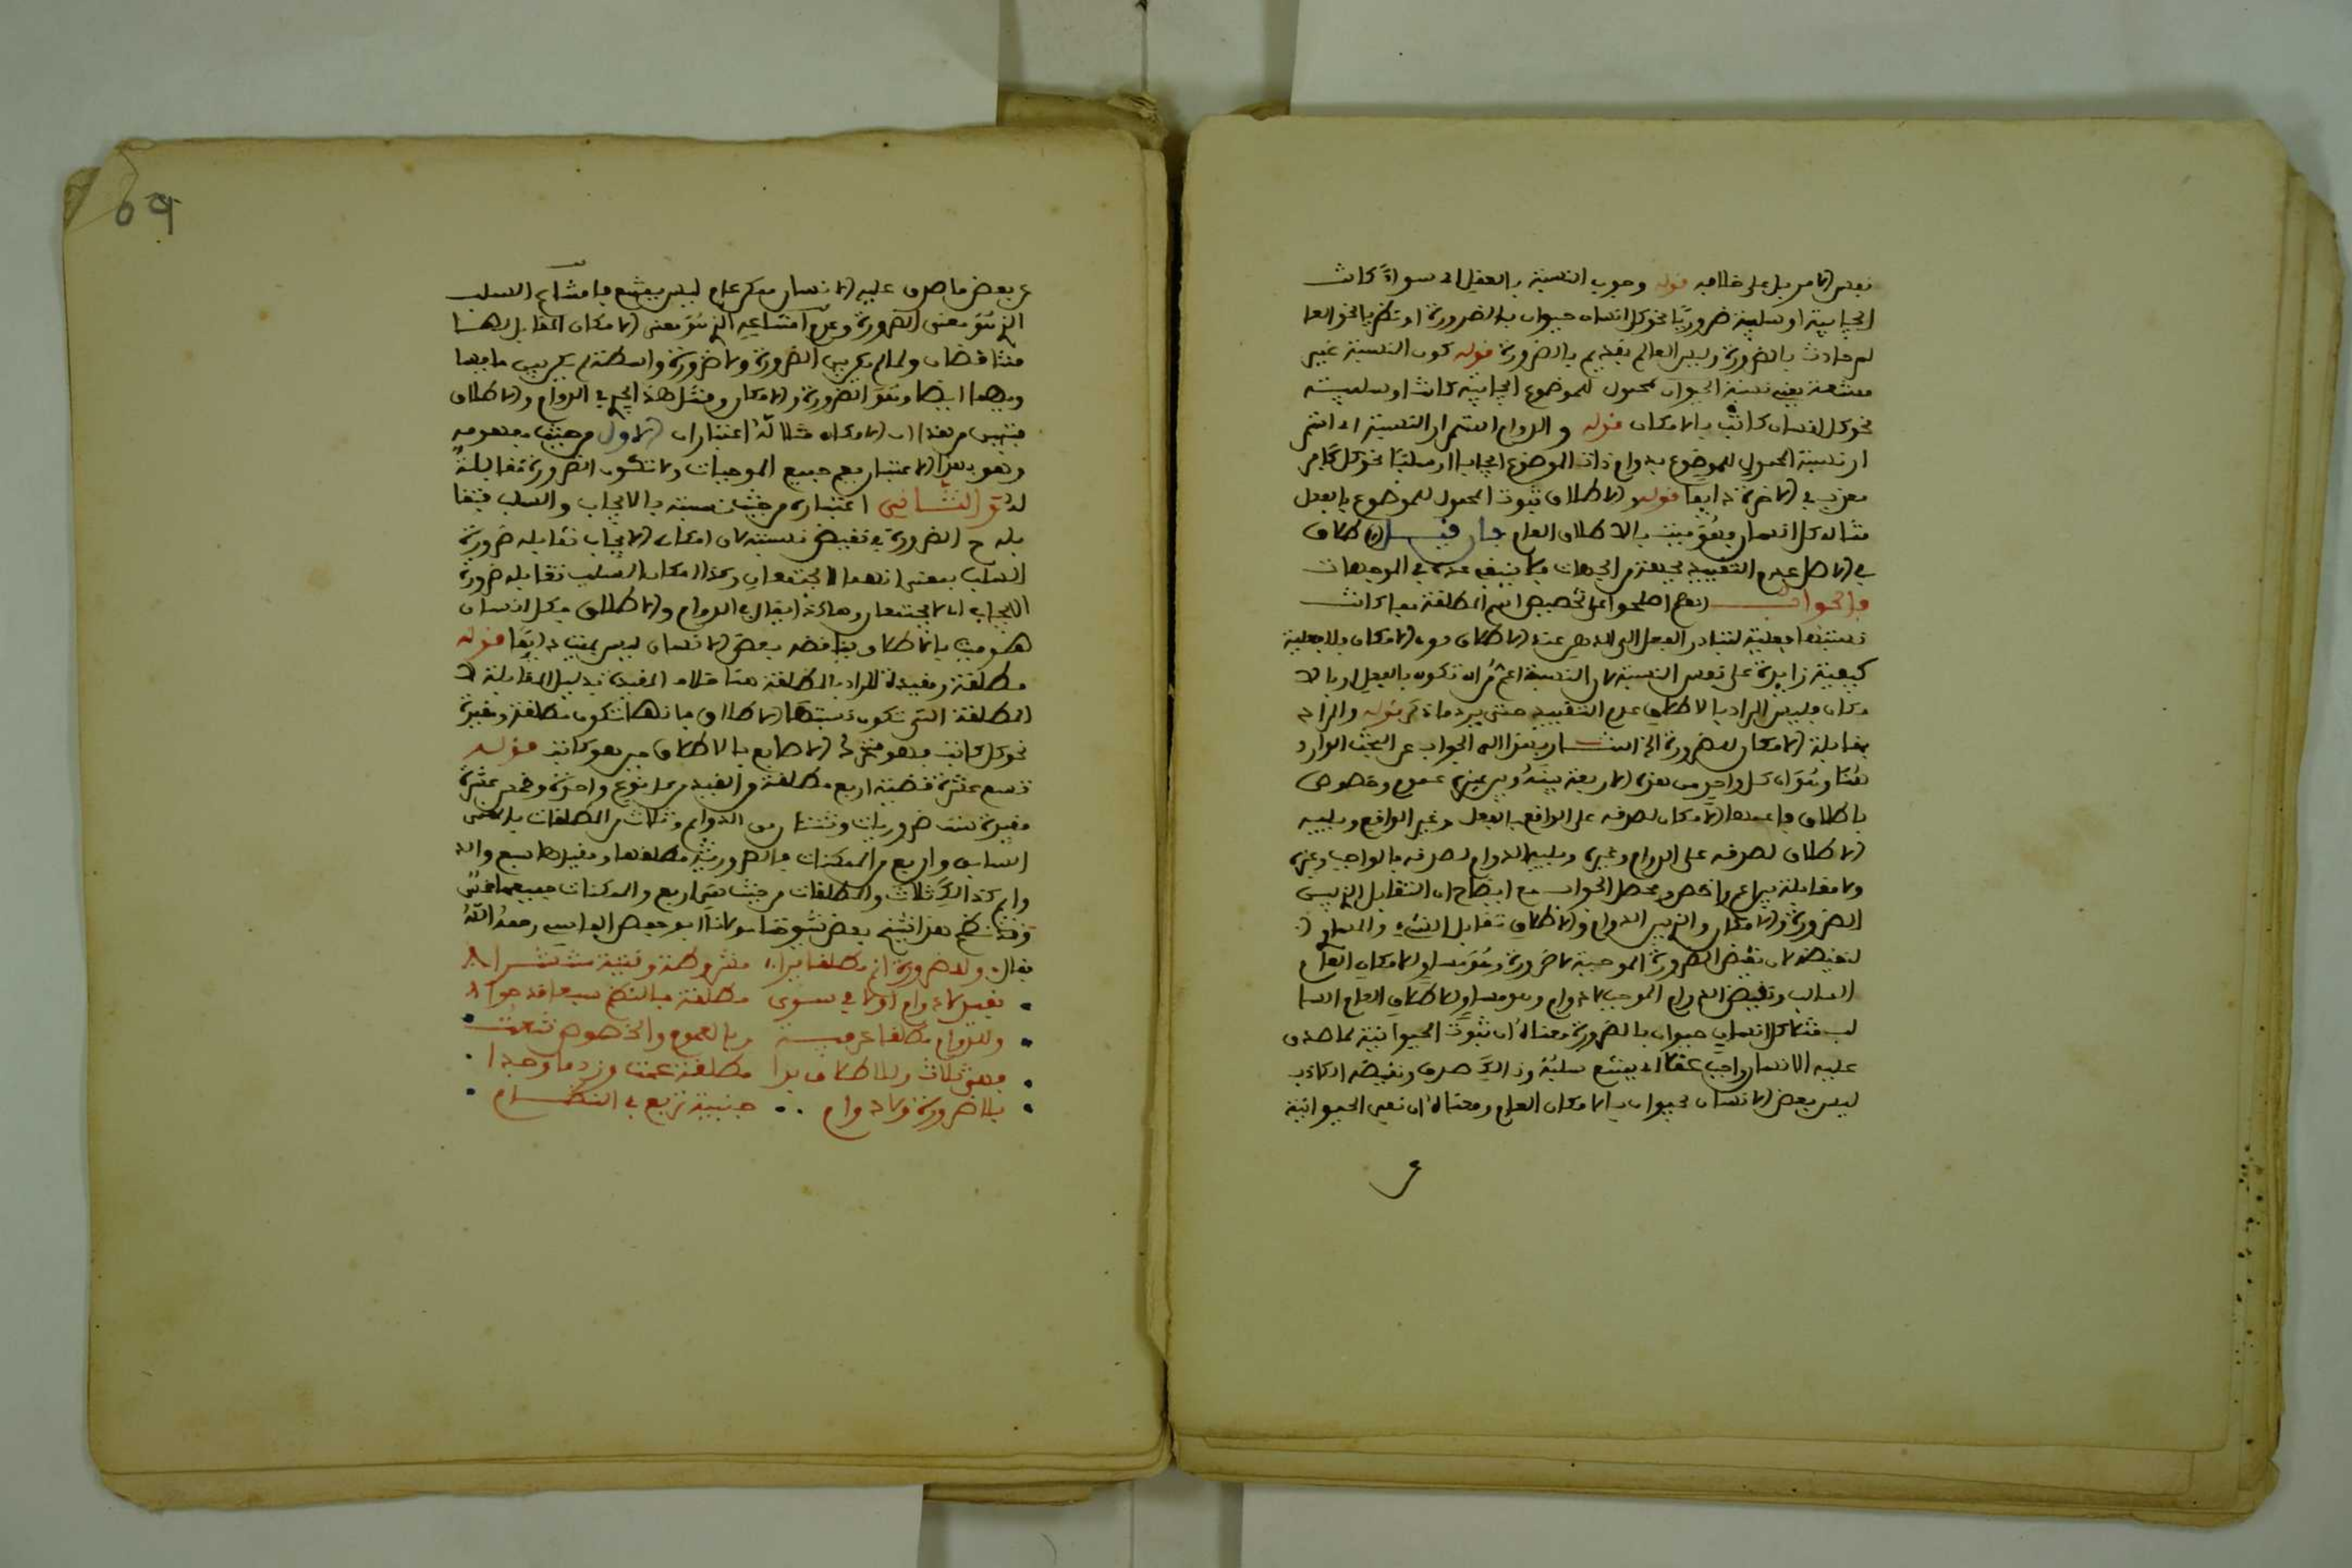 نفس الامر بل على خلافه قوله وجوب النسبة بالعقل الخ سواء كانت
ايجابية او سلبية ضروريا نحو كل انسان حيوان بالضرورة او نظريا نحو العا
لم حادث بالضرورة وليس العالم بقديم بالضرورة قوله كون النسبة غير
ممتنعة يعني نسبة المحمول للموضوع ايجابية كانت او سلبية
نحو كل انسان كاتب بالامكان قوله والدوام استمرار النسبة الخ استمر
ار نسبة المحمول للموضوع بدوام ذات الموضوع ايجابا او سلبا نحو كل كافر
معذب في الاخرة دايما قوله والاطلاق ثبوت المحمول للموضوع بالفعل
مثاله كل انسان ميت بالاطلاق العام فان قيل الاطلاق
في الاصل عدم التقييد بجهة من الجهات فلا ينبغي عده في الموجهات
فالجواب انهم اصطلحوا على تخصيص اسم المطلقة بما كانت
نسبتها فعلية لتبادر الفعل الى الذهن عند الاطلاق دون الامكان والفعلية
كيفية زايدة على نفس النسبة لان النسبة اعم من ان تكون بالفعل او بالا
مكان فليس المراد بالاطلاق عدم التقييد حتى يرد ما ذكر قوله والمراد
بمقابلة الامكان للضرورة الخ اشار بهذا الى الجواب عن البحث الوارد
هنا وهو ان كل واحد من هذه الاربعة بينه وبين غيره عموم وخصوص
باطلاق فاعمها الامكان لصدقه على الواقع بالفعل وغير الواقع ويليه
الاطلاق لصدقه على الدوام وغيره ويليه الدوام لصدقه بالواجب وغيره
ولا مقابلة بين اعم واخص ومحصل الجواب مع ايضاح ان التقابل الذي بين
الضرورة والامكان والذي بين الدوام والاطلاق تقابل الشيء والمساوي
لنقيضه لان نقيض الضرورة الموجبة لا ضرورة وهو مساو للامكان العام
السالب ونقيض الدوام الموجب لا دوام وهو مساو للاطلاق العام السا
لب فمثلا كل انسان حيوان بالضرورة معناه ان ثبوت الحيوانية لما صدق
عليه الانسان واجب عقلا اي يمتنع سلبه وذلك صدق ونقيضه الكاذب
ليس بعض الانسان بحيوان بالامكان العام ومعناه ان نفي الحيوانية
عن
عن بعض ما صدق عليه الانسان ممكن عام ليس بممتنع فامتناع السلب
الذي هو معنى الضرورة وعدم امتناعه الذي هو معنى الامكان المقابل لها
متناقضان ولما لم يكن بين الضرورة ولا ضرورة واسطة لم يكن بين مامعها
وبهما ايضا وهو الضرورة والامكان ومثل هذا يجري في الدوام والاطلاق
فتبين من هذا ان للامكان مثلا له اعتباران الاول من حيث مفهومه
وهو بهذا الاعتبار يعم جميع الموجبات ولا تكون الضرورة مقابلة
له الثاني اعتباره من حيث نسبته بالايجاب والسلب فتقا
بله ح الضرورة في نقيض نسبته لان امكان الايجاب تقابله ضرورة
السلب بمعنى انهما لا يجتمعان وكذا امكان السلب تقابله ضرورة
الايجاب اي لا يجتمعان وهكذا يقال في الدوام والاطلاق فكل انسان
ميت بالاطلاق يناقضه بعض الانسان ليس بميت دايما قوله
مطلقة ومقيدة المراد بالمطلقة هنا خلاف المقيدة بدليل المقابلة لا
المطلقة التي تكون نسبتها الاطلاق فانها تكون مطلقة ومقيدة
نحو كل كاتب فهو متحرك الاصابع بالاطلاق حين هو كاتب قوله
تسع عشرة قضية اربع مطلقة والقيد من كل نوع واحدة وخمس عشرة
مقيدة ست ضروريات وثنتان من الدوايم وثلاث من المطلقات بالمعنى
السابق واربع من الممكنات فالضرورية مطلقها ومقيدها سبع والد
وايم كذلك ثلاث والمطلقات من حيث هي اربع والممكنات جميعها خمس
وقد نظم هذا بعض شيوخنا مولانا ابو جعفر رحمه الله
فقال ولضرورة ان مطلقا بدا مشروطة وقتية منتشرا
بقيد لا دوام او لا في سوى مطلقة فبالنظم سبعا قد حوا
وللدوام مطلقا عرفية وبالعموم والخصوص تنعت
فهي ثلاث وللاطلاق بدا مطلقة عمت وزد ما وجدا
بلا ضرورة ولا دوام حينية تربع في النظام